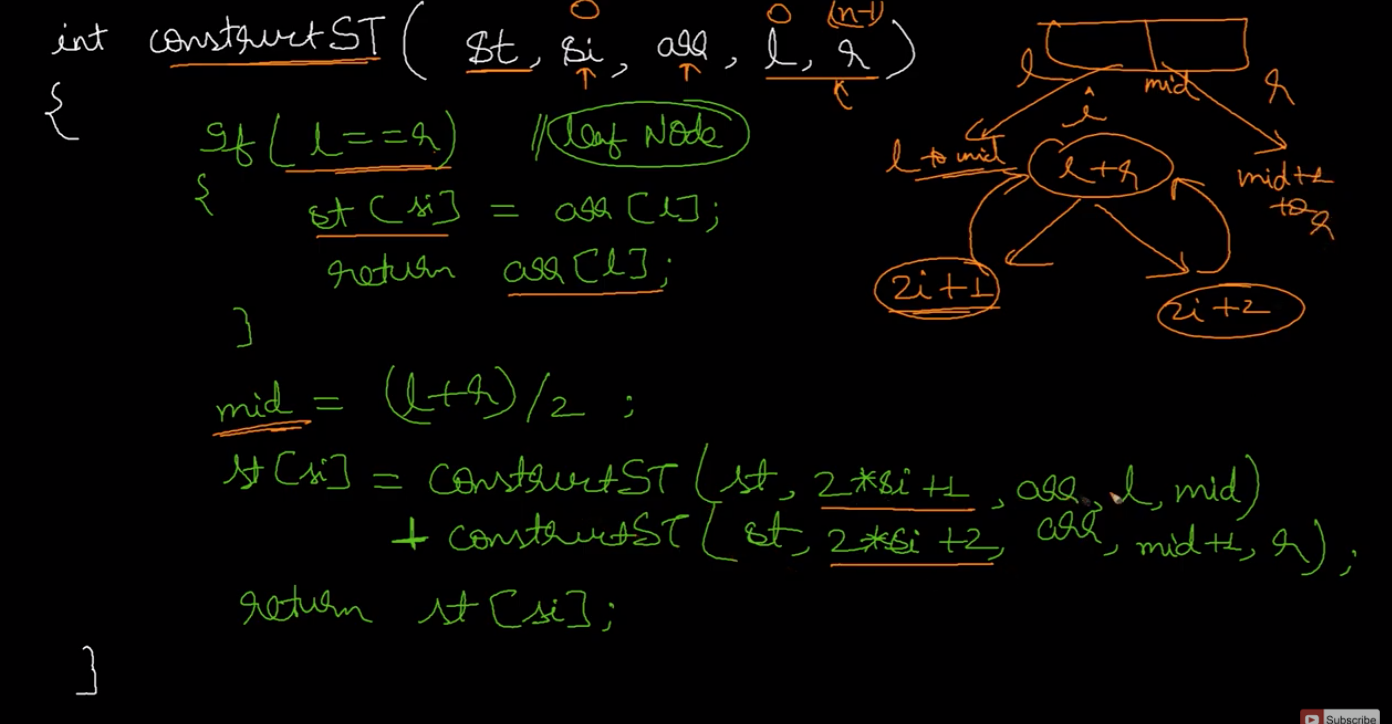 0 0 (n-1)
int constructST( st, si, arr, l, r)
{
if( l==r) // leaf Node
{
st[si] = arr[l];
return arr[l];
}
mid = (l+r)/2 ;
st[si] = constructST( st, 2*si+1, arr, l, mid)
+ constructST( st, 2*si+2, arr, mid+1, r);
return st[si];
}
l mid r
i
l to mid l+r mid+1
to r
2i+1 2i+2
Subscribe